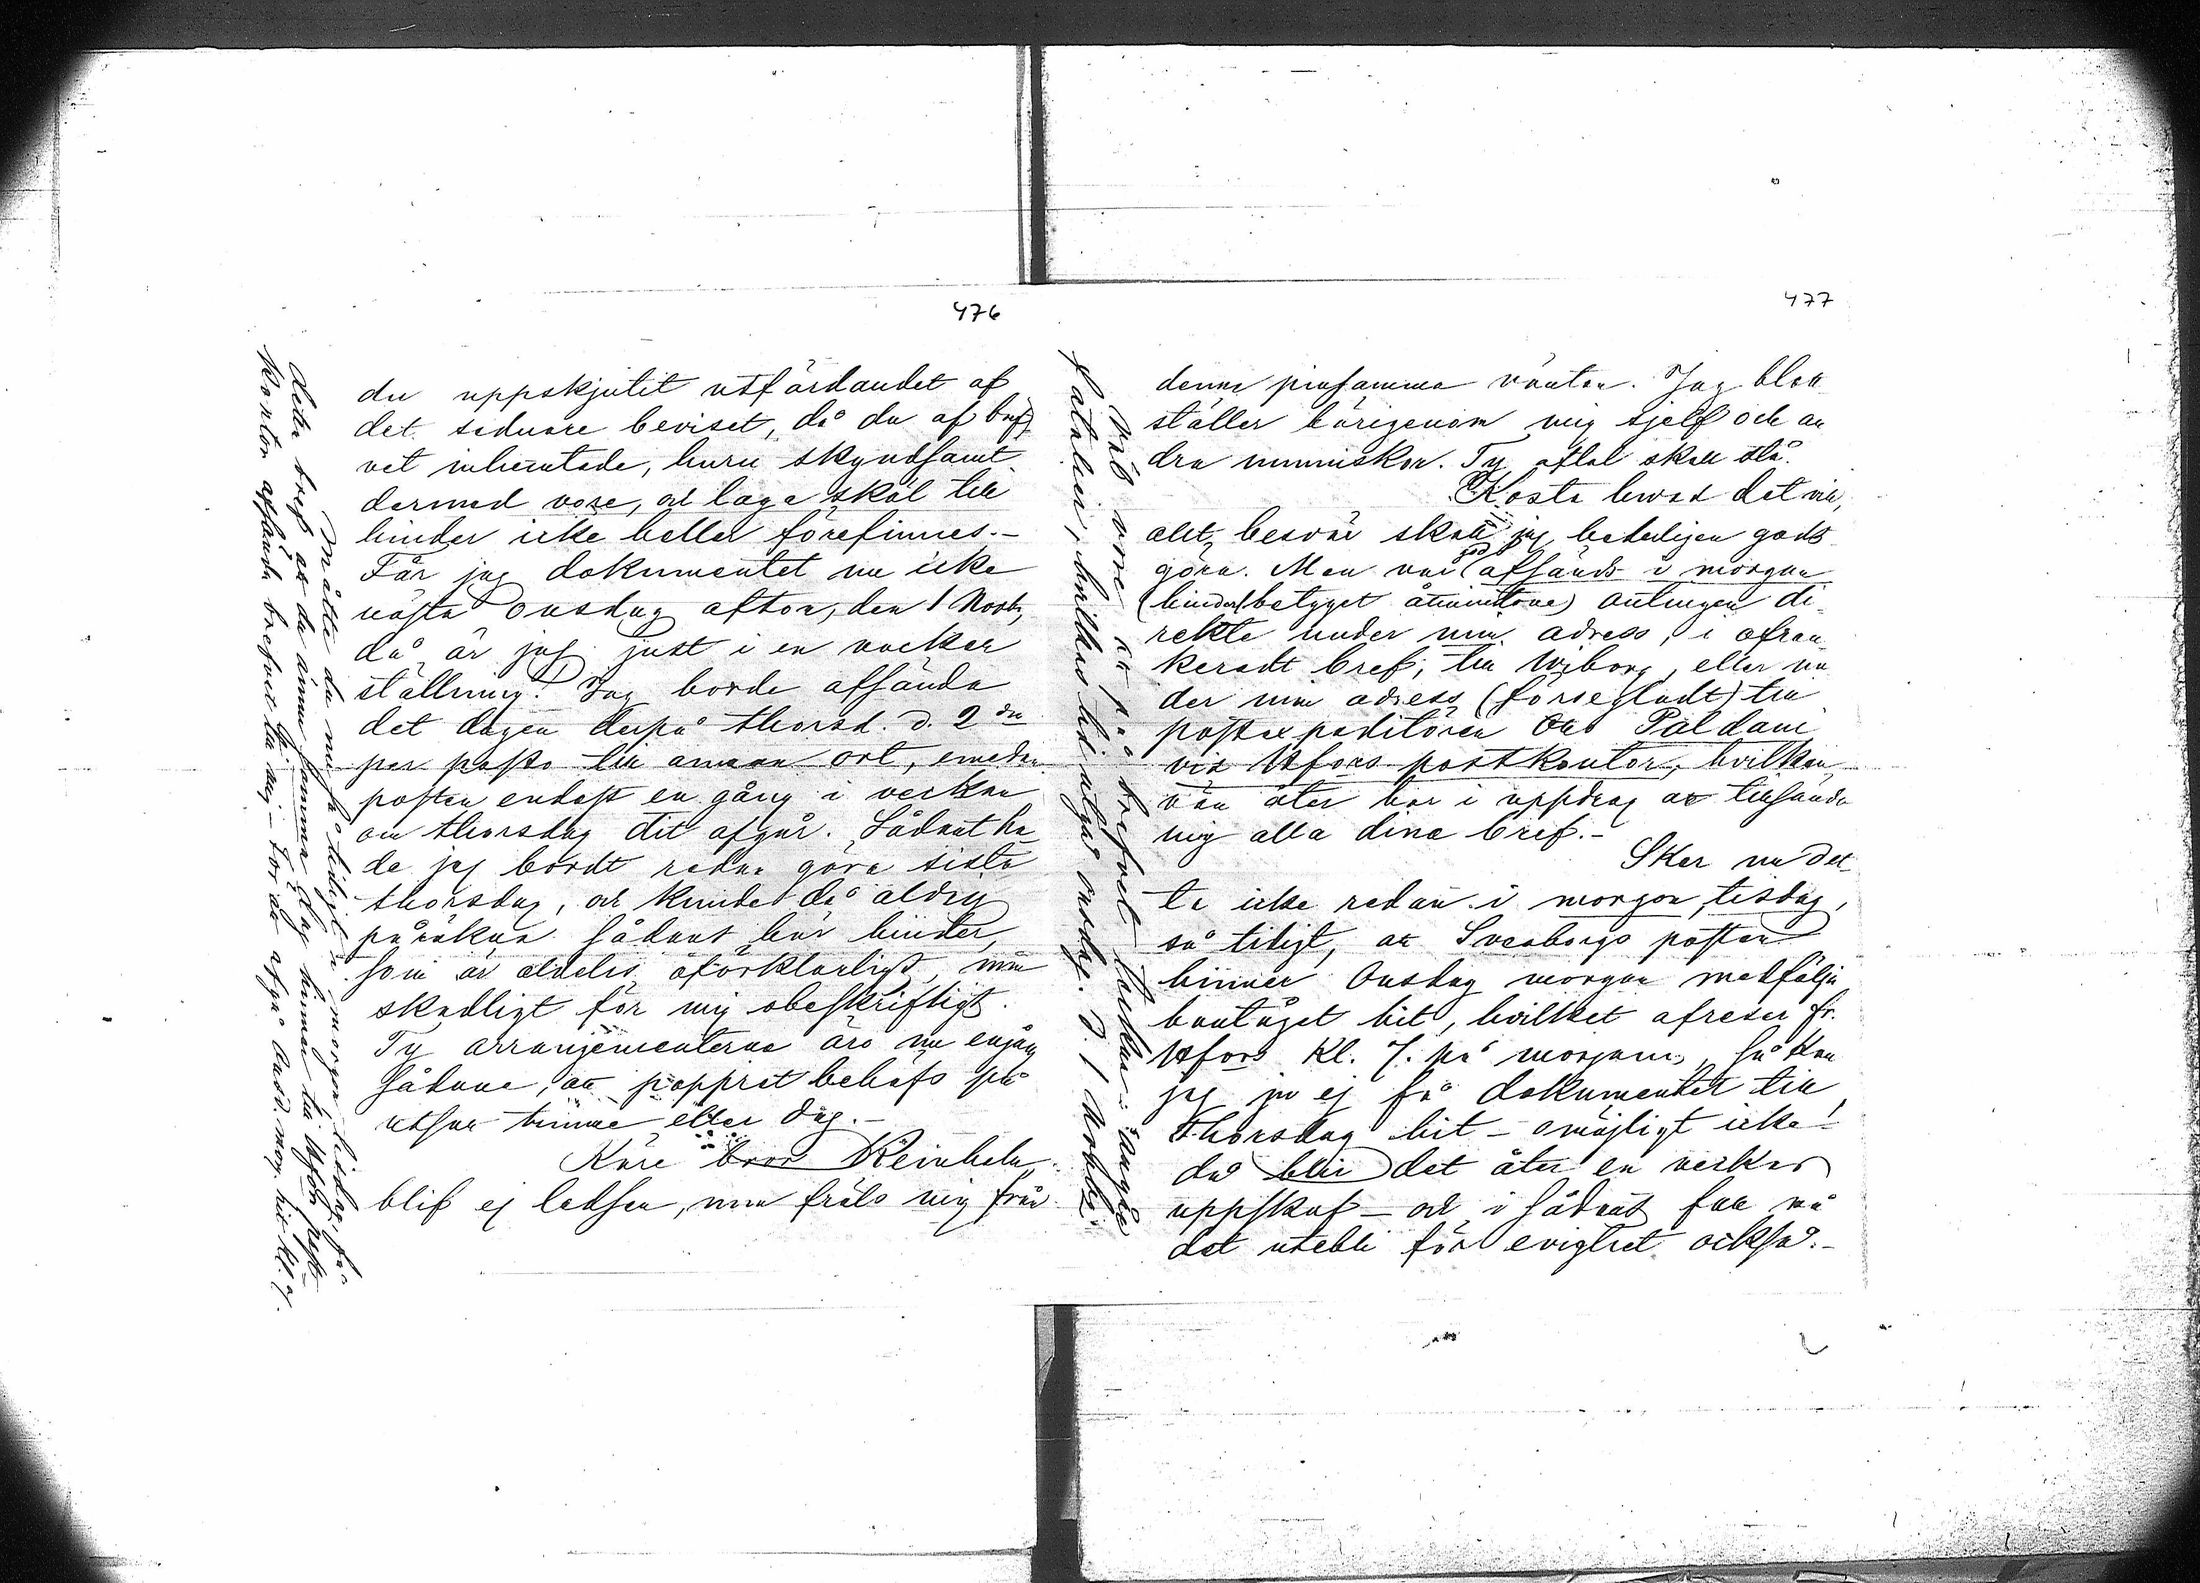 476
du uppskjutit utfärdandet af
det sednare beviset, då du af bref
vet inhemtade, huru skyndsamt
dermed vore, och laga skäl till
hinder icke heller förefinnes.–
Får jag dokumentet nu icke
nästa onsdag afton, den 1 Novb,
då är jag just i en vacker
ställning! Jag borde afsända
det dagen derpå thorsd. d. 2dn
per posto till annan ort, emedan
posten endast en gång i veckan
om thorsdag dit afgår. Sådant ha
de jag bordt redan göra sista
thorsdag, och kunde då aldrig
påräkna sådant här hinder,
som är aldeles oförklarligt, men
skadligt för mig obeskrifligt.
Ty arrangementerna äro nu engång
sådana, att pappret behöfs på
utsatt timme eller dag.–
Käre bror Reinholm,
blif ej ledsen, men fräls mig från
Måtte du nu så tidigt i morgon tisdag få
detta bref att du ännu samma dag hinner till Hfors post
kontor afsända brefvet till mig – för att afgå onsd. morg. hit kl. 7.
477
denna pinsamma väntan. Jag blott
ställer härigenom mig sjelf och an
dra menniskor. Ty aftal skall stå.
Kosta hvad det vill,
allt besvär skall jag bederligen godt
göra. Men var god afsänd i morgon
(hinderbetyget åtminstone) antingen di
rekte under min adress, i ofran
keradt bref, till Wiborg, eller un
der min adress (försegladt) till
postexpeditören Paldani
vid Hfors postkontor, hvilken
vän åter har i uppdrag att tillsända
mig alla dina bref.–
Sker nu det
ta icke redan i morgon, tisdag,
så tidigt, att Sveaborgs posten
hinner Onsdag morgon medfölja
bantåget hit, hvilket afreser fr.
Hfors kl. 7. på morgonen, så kan
jag ju ej få dokumentet till
Thorsdag hit – omöjligt icke!
då blir det åter en veckas
uppskof – och i sådant fall må
det utebli för evighet också.–
brefvet
hvilken tid utgår onsdag. d. 1 Novbr.